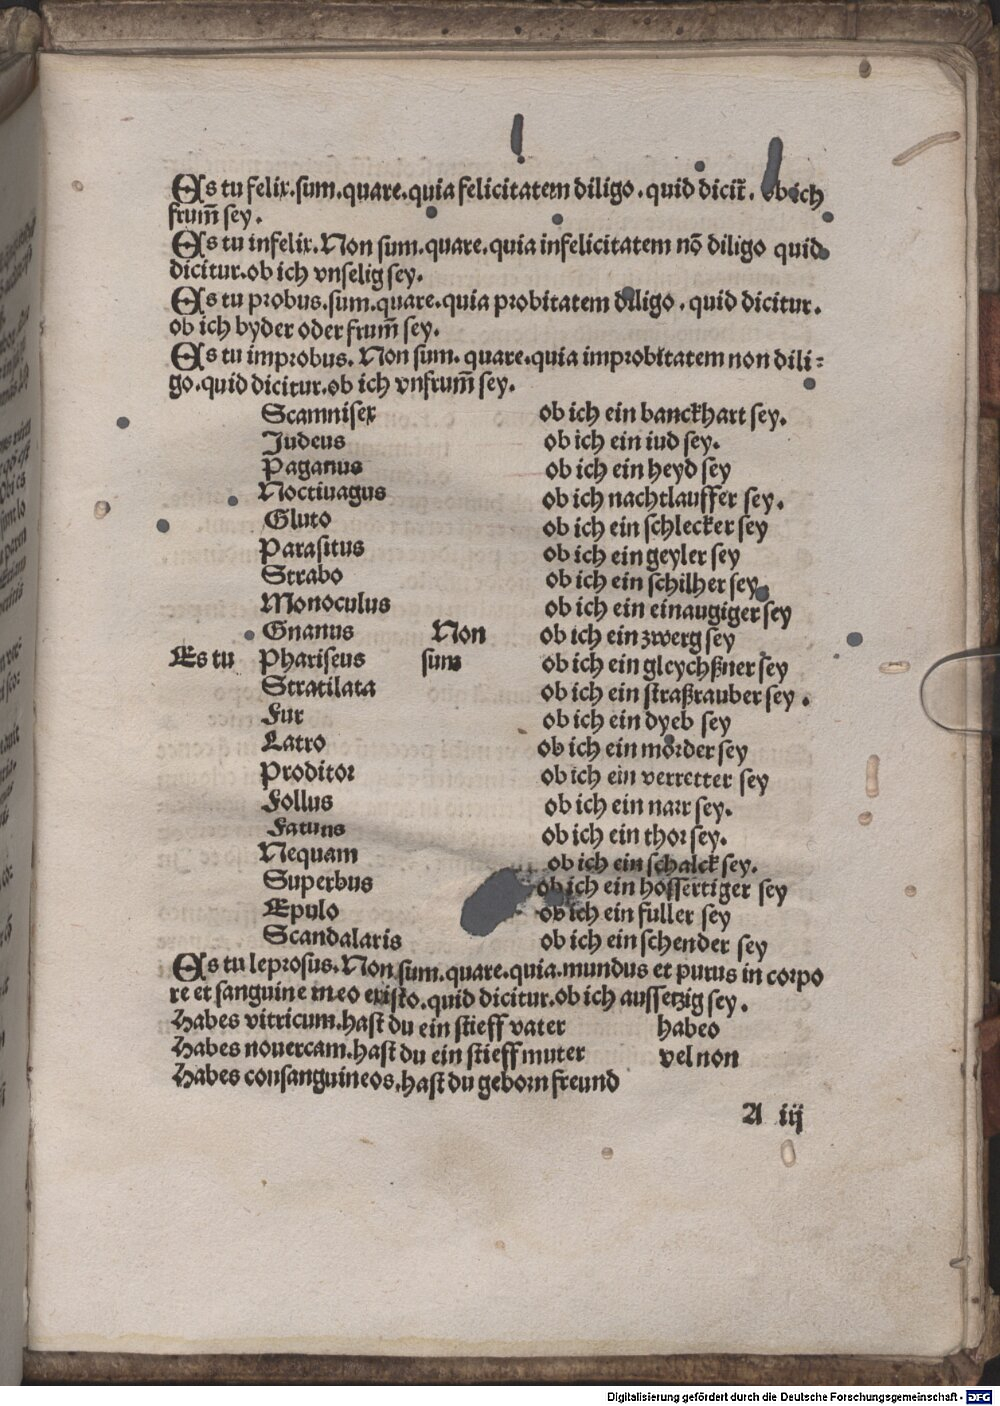 Es tu felix.sum.quare.quia felicitatem diligo.quid dicit̄. ob ich
frum̄ sey.
Es tu infelix.Non sum.quare.quia infelicitatem nō diligo quid
dicitur.ob ich vnselig sey.
Es tu probus.sum.quare.quia probitatem diligo.quid dicitur.
ob ich byder oder frum̄ sey.
Es tu improbus.Non sum.quare.quia improbitatem non dili⸗
go.quid dicitur.ob ich vnfrum̄ sey.
Scamnisex ob ich ein banckhart sey.
Judeus ob ich ein iud sey.
Paganus ob ich ein heyd sey
Noctiuagus ob ich nachtlauffer sey.
Gluto ob ich ein schlecker sey
Parasitus ob ich ein geyler sey
Strabo ob ich ein schilher sey
Monoculus ob ich ein einaugiger sey
Gnanus Non ob ich ein zwerg sey
Es tu Phariseus sum ob ich ein gleychßner sey
Stratilata ob ich ein straßrauber sey.
Fur ob ich ein dyeb sey
Latro ob ich ein mörder sey
Proditor ob ich ein verretter sey
Follus ob ich ein narr sey.
Fatuus ob ich ein thor sey.
Nequam ob ich ein schalck sey.
Superbus ob ich ein hoffertiger sey
Epulo ob ich ein fuller sey
Scandalaris ob ich ein schender sey
Es tu leprosus.Non sum.quare.quia.mundus et purus in corpo
re et sanguine meo existo.quid dicitur.ob ich aussetzig sey.
Habes vitricum.hast du ein stieff vater habeo
Habes nouercam.hast du ein stieff muter vel non
Habes consanguineos.hast du geborn freund
A iij
Digitalisierung gefördert durch die Deutsche Forschungsgemeinschaft - DFG